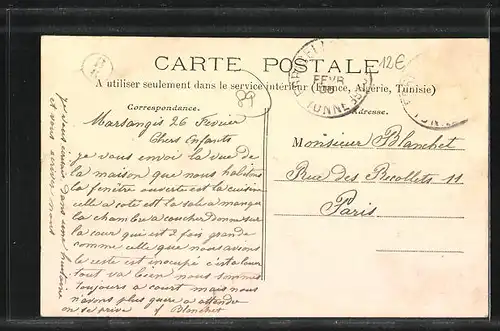 CARTE POSTALE
A utiliser seulement dans le service intérieur (France, Algérie, Tunisie)
12€
89
FEVR
YONNE
Correspondance.
Adresse.
Marsangis 26 Fevrier
Chers Enfants
je vous envoi la vue de
la maison que nous habitons
la fenêtre ouverte est la cuisine
celle a coté est la sale a manger
la chambre a coucher donne sur
la cour qui est 2 fois grande
comme celle que nous avons
le reste est inocupé c'est a louer
tout va bien nous sommes
toujours a court mais nous
n'avons plus guere a attendre
on se prive f Blanchet
je vous écrirai dans une huitaine
et vous avisé nous
Monsieur Blanchet
Rue des Recollets 11
Paris